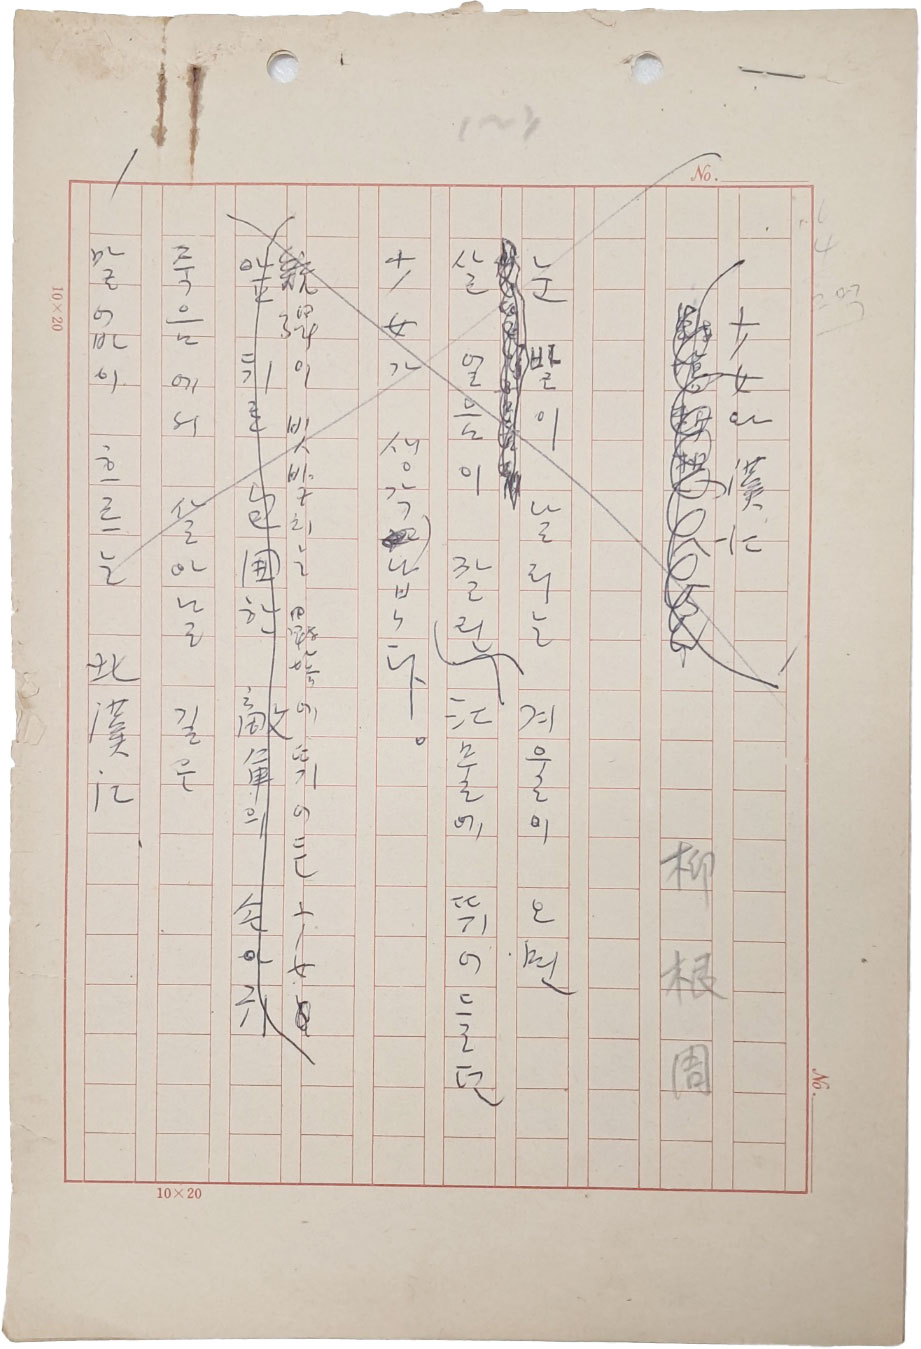 No.
少女와 漢江
柳根周
눈발이 날리는 겨울이 오면
살얼음이 잘린 江물에 뛰어들던
少女가 생각납니다.
銃彈이 빗발치는 戰禍에 뛰어든 少女
앞뒤로 包圍한 敵軍의 손아귀
죽음에서 살아날 길은
말없이 흐르는 北漢江
10×20
10×20
No.